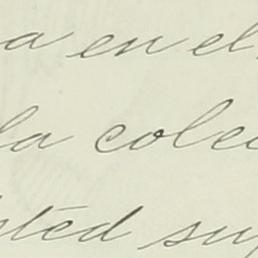 a en el
la colec
sted su